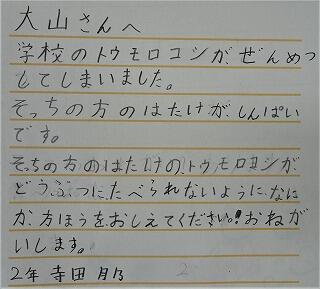 大山さんへ
学校のトウモロコシが、ぜんめつ
してしまいました。
そっちの方のはたけが、しんぱい
です。
そっちの方のはたけの、トウモロコシが
どうぶつにたべられないように、なに
か、方ほうをおしえてください。!おねが
いします。
2年 寺田